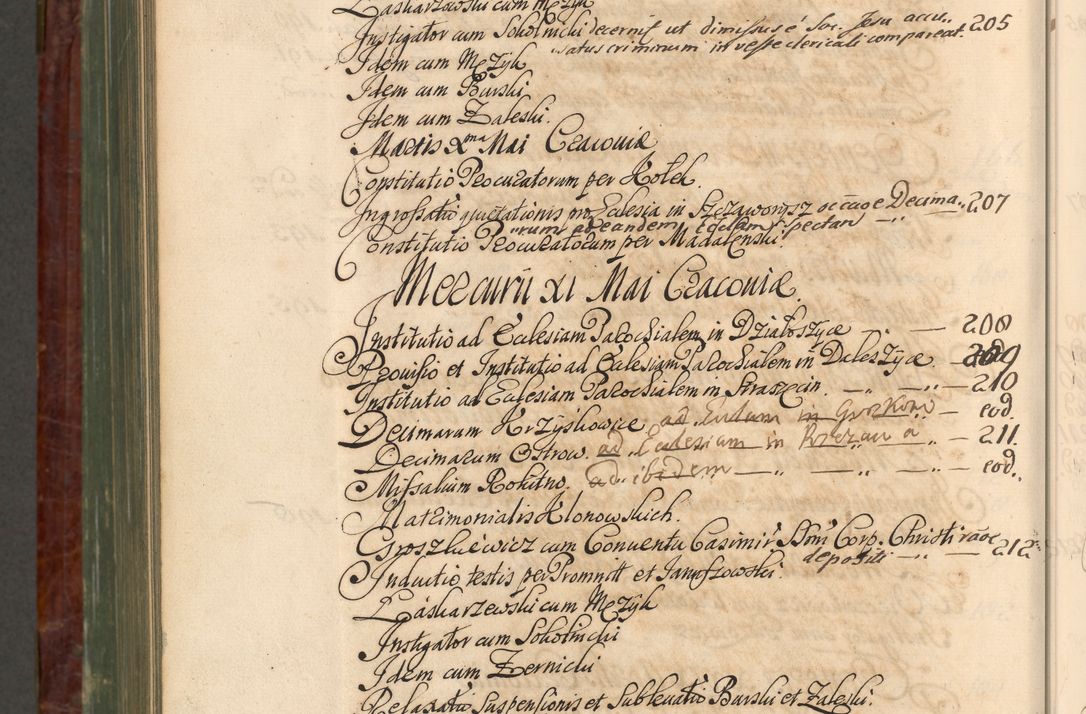 Laskarzewski cum Mężyk
Instigator cum Sokolnicki decernit ut dimissus é Soc. Jesu accu 205
satus criminum in veste clericali compareat.
Idem cum Mężyk
Idem cum Burski
Idem cum Zaleski.
Martis Xma Mai Cracoviæ
Constitutio Procuratorum per Kołek.
Ingrossatio quietationis pro Eclesia in Szczaworysz occ͠aoe Decima 207
rum ad eandem Ecclam spectan
Constitutio Procuratorum per Madalenski.
Mercurii XI Mai Cracoviæ.
Institutio ad Eclesiam Parochialem in Działoszyce 208
Provisio et Institutio ad Eclesiam Parochialem in Daleszyce 209
Institutio ad Eclesiam Parochialem in Straszęcin 210
Decimarum Krzyżkowice ad in eod.
Decimarum Ostrow. ad Ecclesiam in 211.
Missalium Rokitno. ad ibidem eod.
Matrimonialis Klonowskich.
Groszkiewicz cum Conventu Casimir SSmi Corp. Christi r͠aoe 212
depositi
Inductio testis per Promnoti et Jampszowski.
Laskarzewski cum Mężyk
Instigator cum Sokolnicki
Idem cum Zernicki
Relaxatio Suspensionis et Sublevatio Burski et Zaleski.